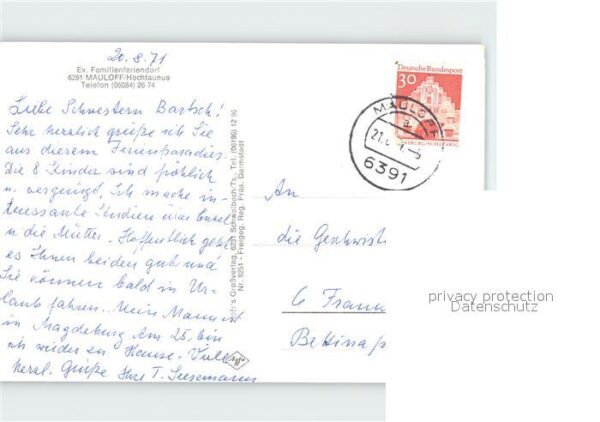 20.8.71
Ev. Familienferiendorf
6391 MAULOFF/Hochtaunus
Telefon (06084) 26 74
Liebe Schwestern Bartsch!
Sehr herzlich grüße ich Sie
aus diesem Ferienparadies.
Die 8 Kinder sind fröhlich
u. vergnügt, ich mache in-
teressante Studien über
u. die Mütter. Hoffentlich geht
es Ihnen beiden gut und
Sie können bald in Ur-
laub fahren. Mein Mann ist
in Magdeburg. Am 25. bin
ich wieder zu Hause. Viele
herzl. Grüße Ihre T. Seesemann
Großverlag, 6231 Schwalbach/Ts., Tel. (06196) 12 06
Nr. 9251 - Freigeg. Reg. Präs. Darmstadt
Deutsche Bundespost
30
MAULOFF
a
21.
6391
An
die Geschwist
6 Frank
Bettinap
privacy protection
Datenschutz